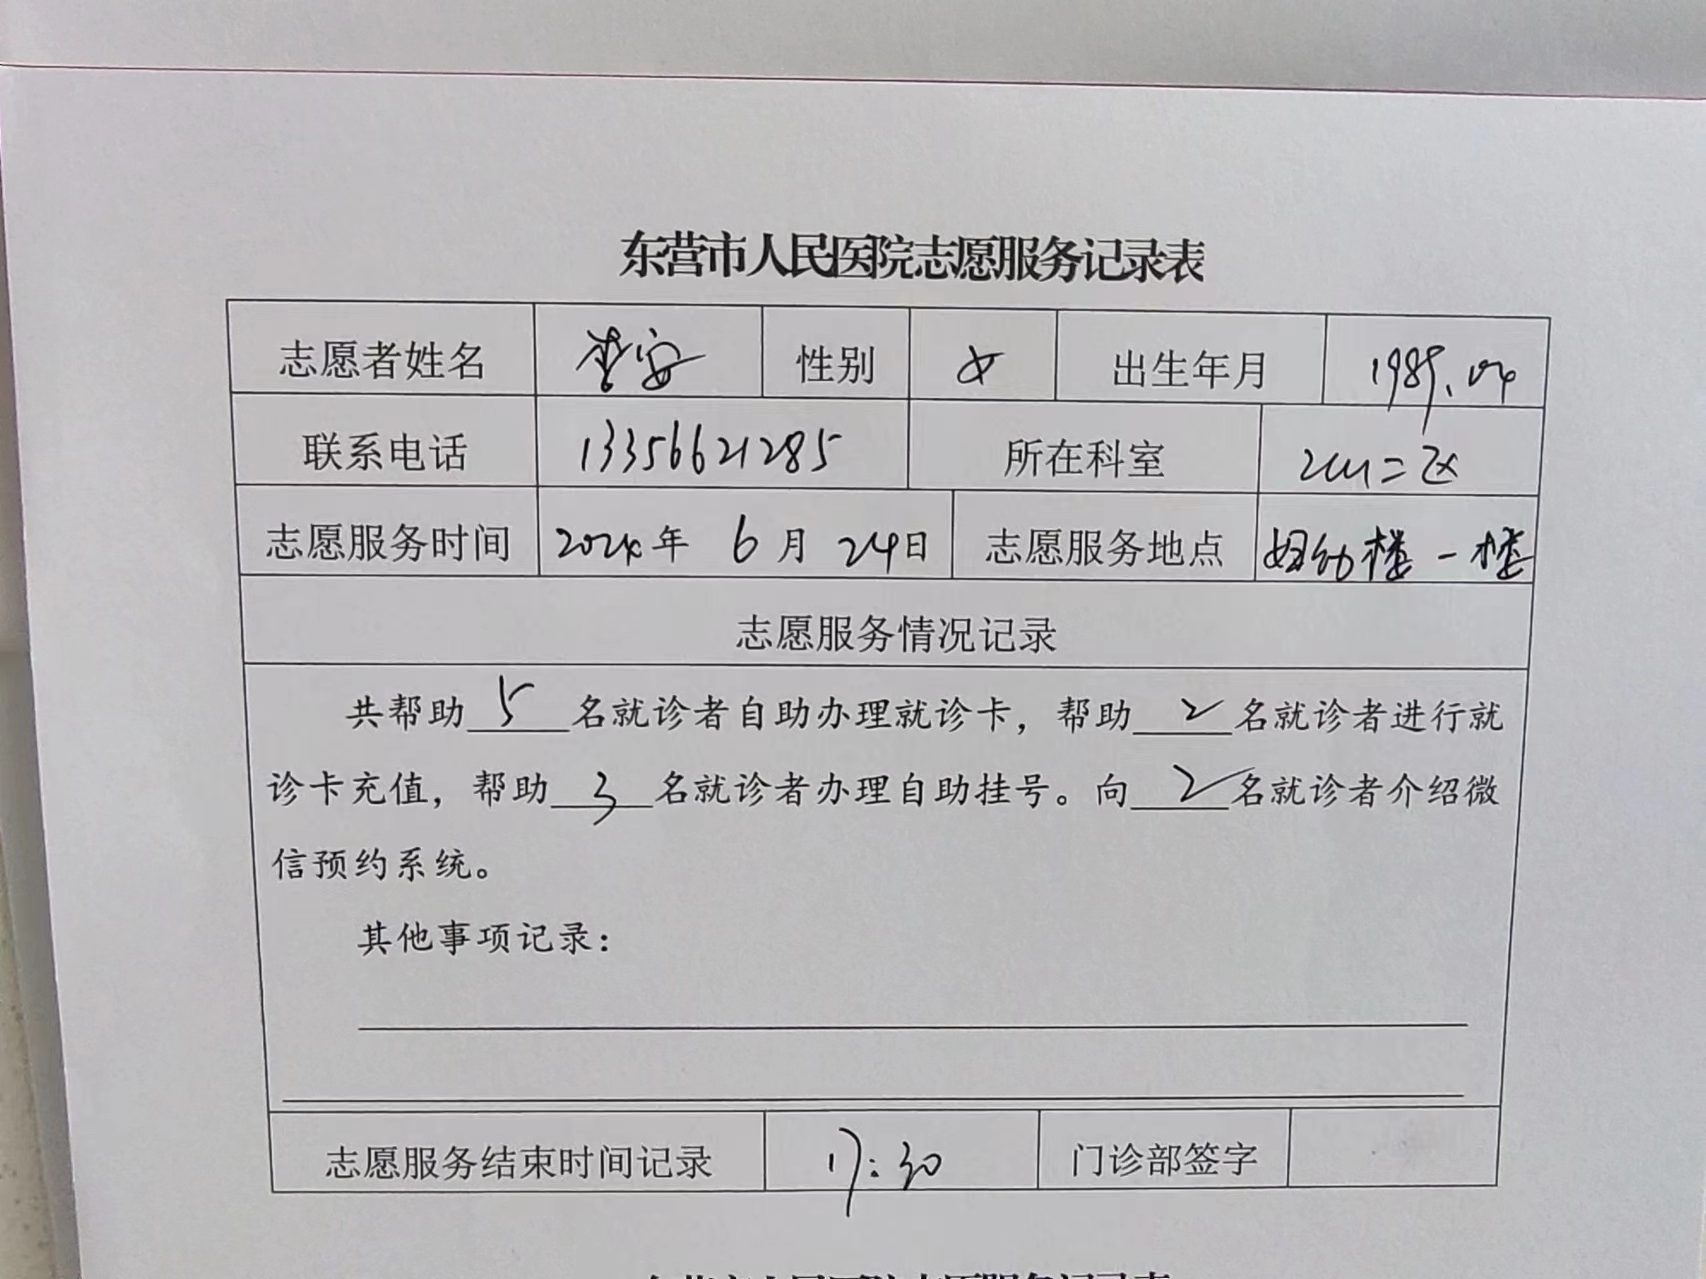 东营市人民医院志愿服务记录表
志愿者姓名 李安 性别 女 出生年月 1989.04
联系电话 13356621285 所在科室 二区
志愿服务时间 2024年 6月 24日 志愿服务地点 妇幼楼一楼
志愿服务情况记录
共帮助 5 名就诊者自助办理就诊卡，帮助 2 名就诊者进行就
诊卡充值，帮助 3 名就诊者办理自助挂号。向 2 名就诊者介绍微
信预约系统。
其他事项记录：
志愿服务结束时间记录 17:30 门诊部签字